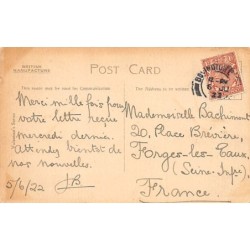 BRITISH
MANUFACTURE
POST CARD
This space may be used for Communication
The Address to be
Merci mille fois pour
votre lettre reçue
mercredi dernier.
Attendez bientot de
nos nouvelles.
5/6/22 JB
Mademoiselle Bachimont
20, Place Brévière,
Forges-les-Eaux,
(Seine-Infre)
France.